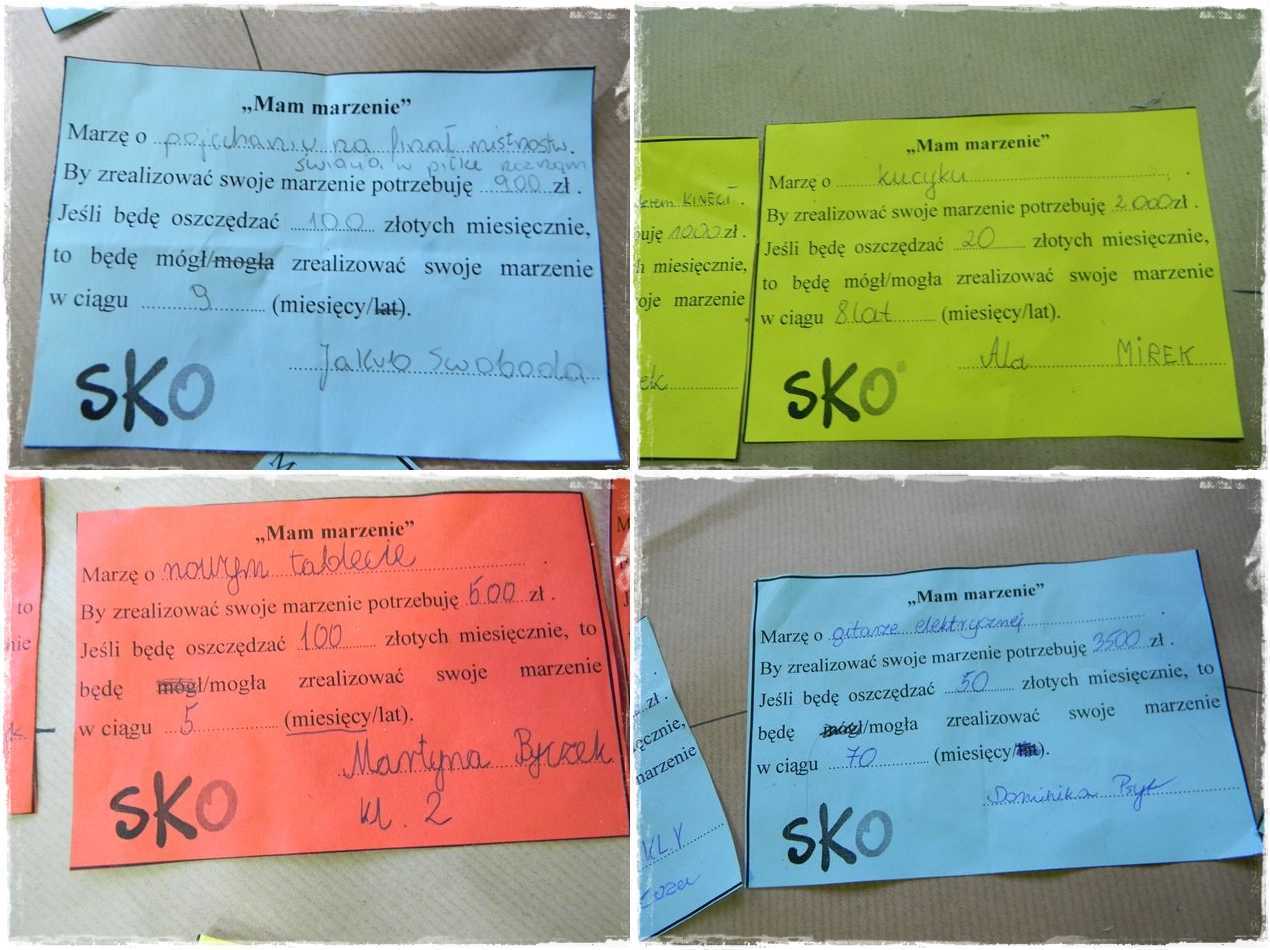 „Mam marzenie”
Marzę o pojechaniu na finał mistrzostw.
świata w piłkę nożną
By zrealizować swoje marzenie potrzebuję 900 zł .
Jeśli będę oszczędzać 100 złotych miesięcznie,
to będę mógł/mogła zrealizować swoje marzenie
w ciągu 9 (miesięcy/lat).
Jakub Swoboda
SKO
KINECT .
buję 1000 zł .
h miesięcznie,
oje marzenie
ek
„Mam marzenie”
Marzę o kucyku .
By zrealizować swoje marzenie potrzebuję 2000 zł .
Jeśli będę oszczędzać 20 złotych miesięcznie,
to będę mógł/mogła zrealizować swoje marzenie
w ciągu 8 lat (miesięcy/lat).
Ala MIREK
SKO
to
nie
„Mam marzenie”
Marzę o nowym tablecie .
By zrealizować swoje marzenie potrzebuję 500 zł .
Jeśli będę oszczędzać 100 złotych miesięcznie, to
będę mógł/mogła zrealizować swoje marzenie
w ciągu 5 (miesięcy/lat).
Martyna Byczek
kl. 2
SKO
zł .
ęcznie,
marzenie
KL V
„Mam marzenie”
Marzę o gitarze elektrycznej .
By zrealizować swoje marzenie potrzebuję 3500 zł .
Jeśli będę oszczędzać 50 złotych miesięcznie, to
będę mógł/mogła zrealizować swoje marzenie
w ciągu 70 (miesięcy/lat).
Dominika Psyk
SKO